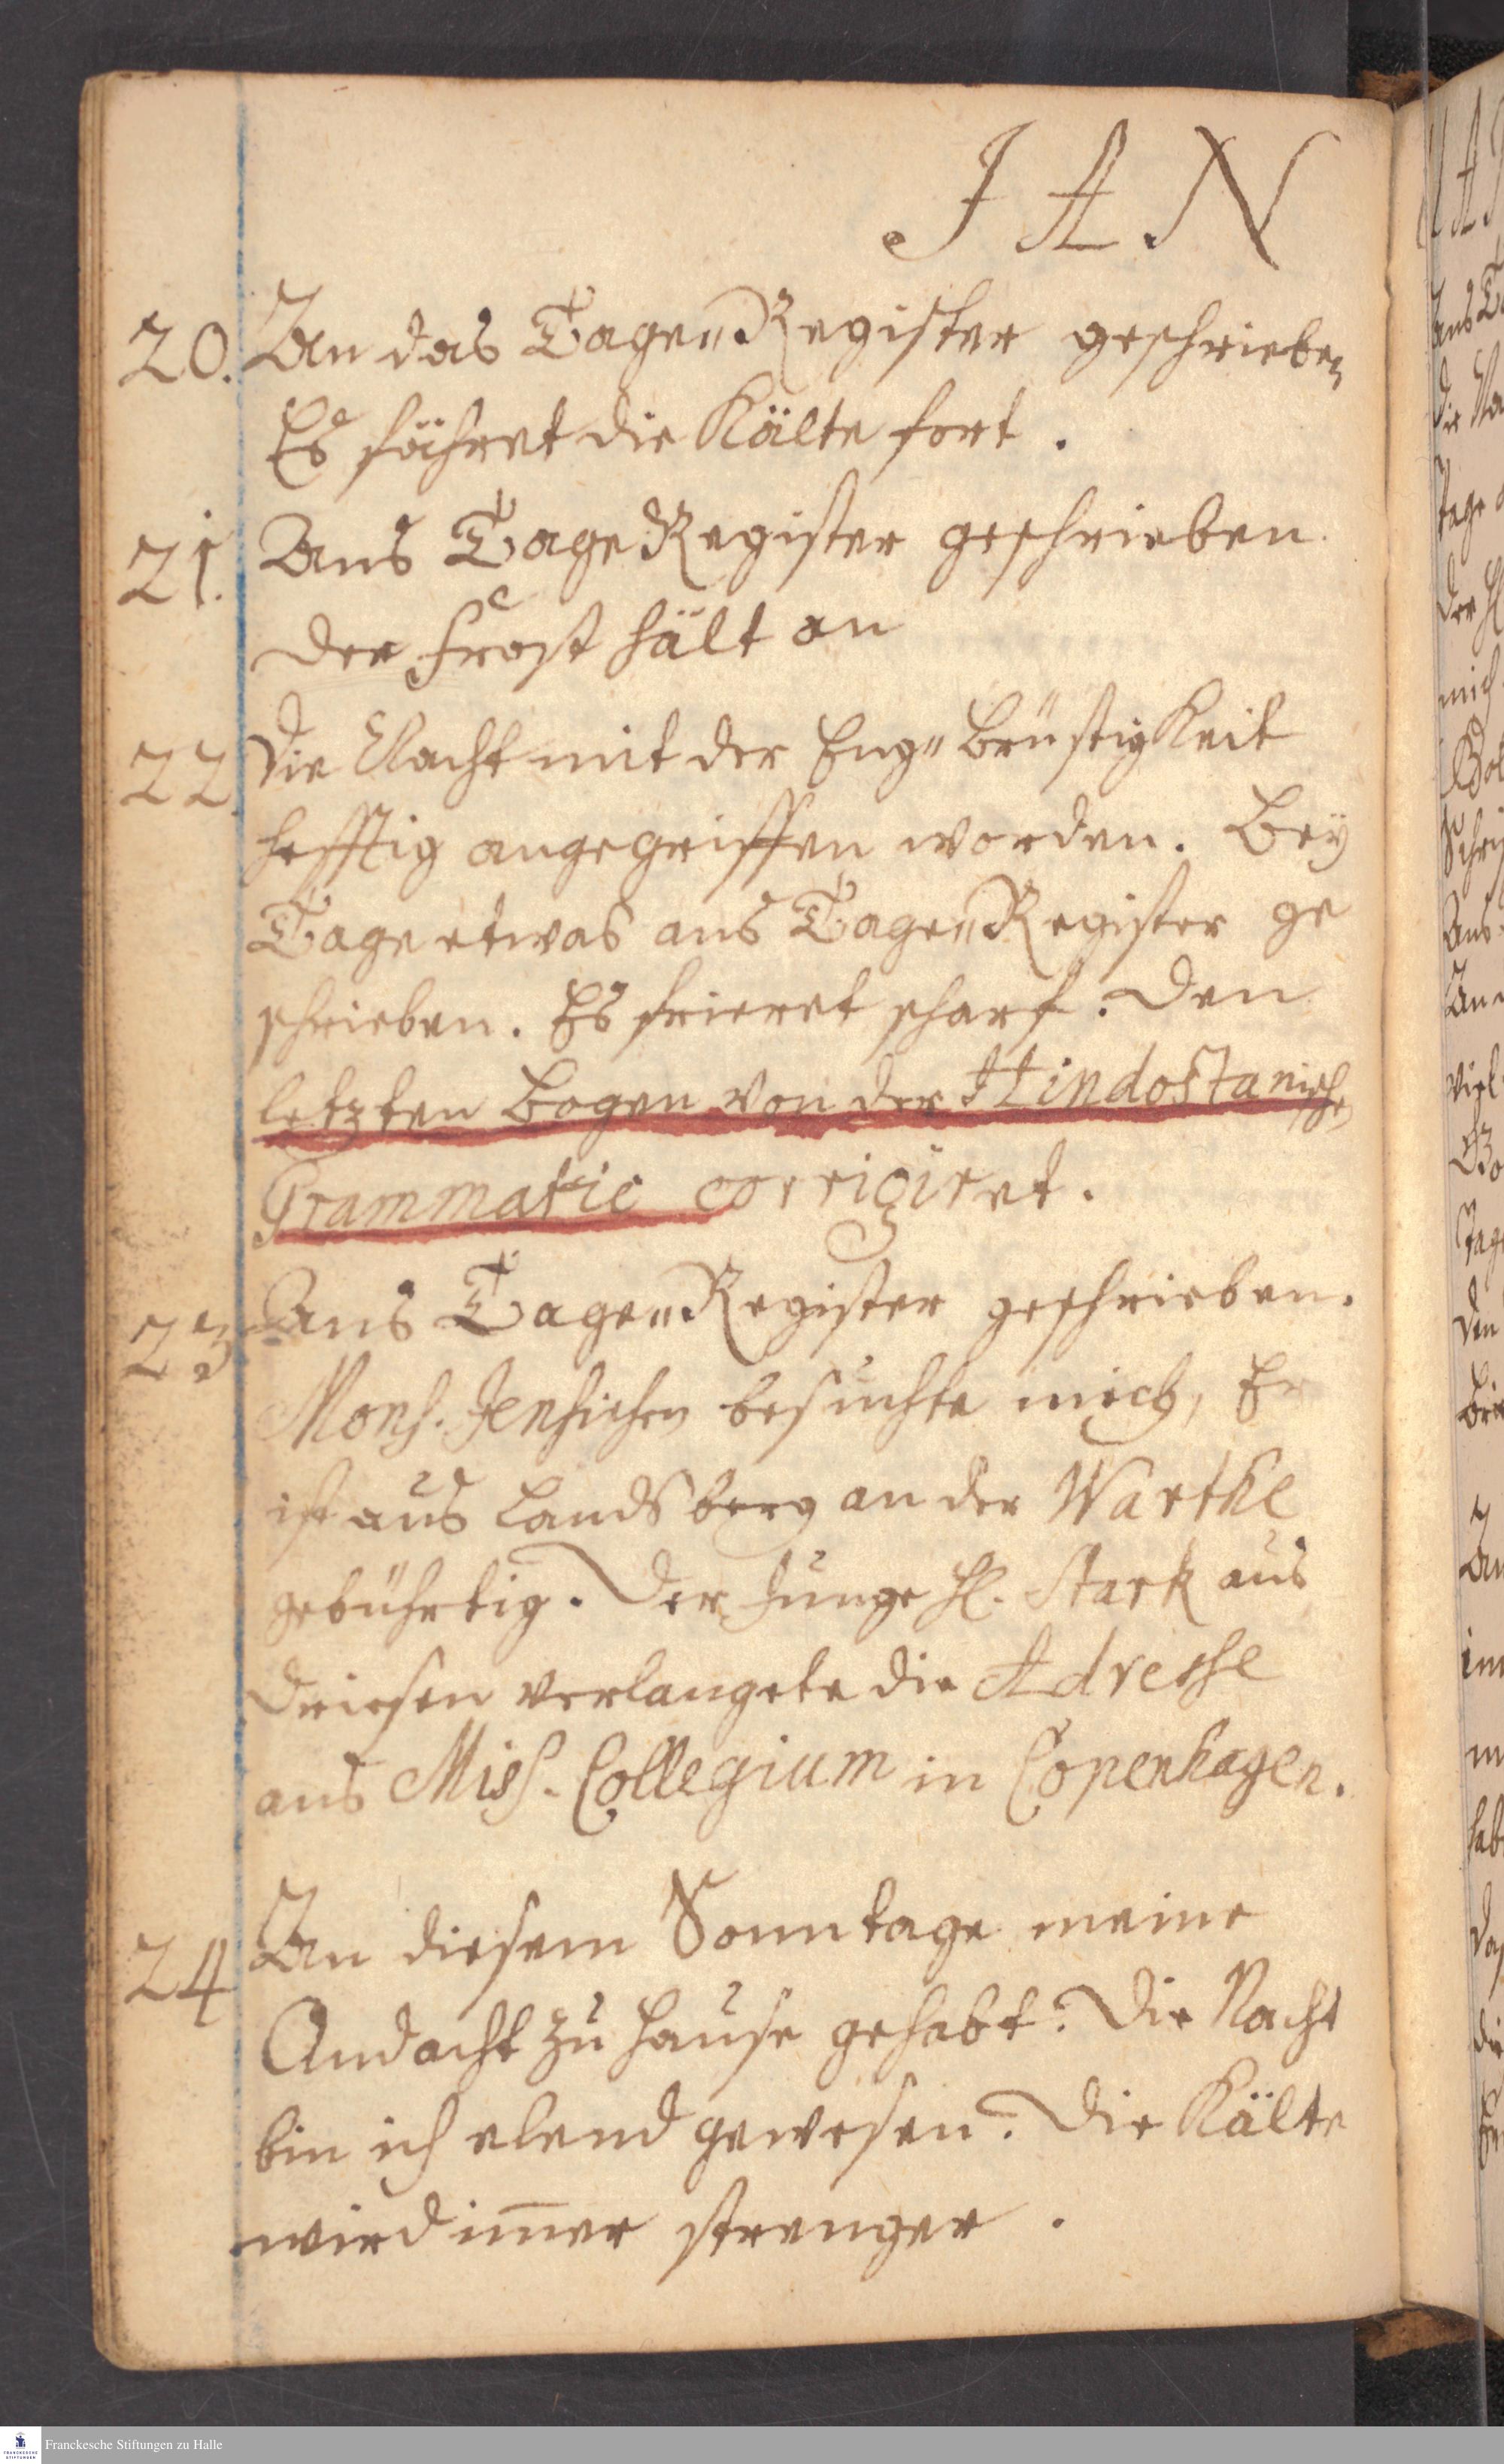 JAN
20. An das Tage„Register geschrieben
Es fähret die Kälte fort.
21. Ans Tage Register geschrieben.
Der Frost hält an
22. Die Nacht mit der Eng„brüstigkeit
hefftig angegriffen worden. Bey
Tage etwas ans Tage„Register ge
schrieben. Es frieret scharf. Den
letzten Bogen von der Hindostanischen
Grammatic corrigiret.
23 Ans Tage„Register geschrieben.
Mons. Jenhichen besuchte mich, Er
ist aus Landsberg an der Warthe
gebührtig. Der Junge H. Stark aus
Driesen verlangete die Adresse
ans Miss. Collegium in Copenhagen.
24 An diesem Sonntage meine
Andacht zu Hause gehabt. Die Nacht
bin ich elend gewesen. Die Kälte
wird im̅er strenger.
Franckesche Stiftungen zu Halle